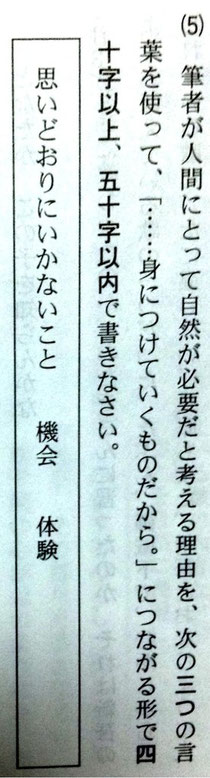 (5) 筆者が人間にとって自然が必要だと考える理由を、次の三つの言
葉を使って、「……身につけていくものだから。」につながる形で四
十字以上、五十字以内で書きなさい。
思いどおりにいかないこと　機会　体験